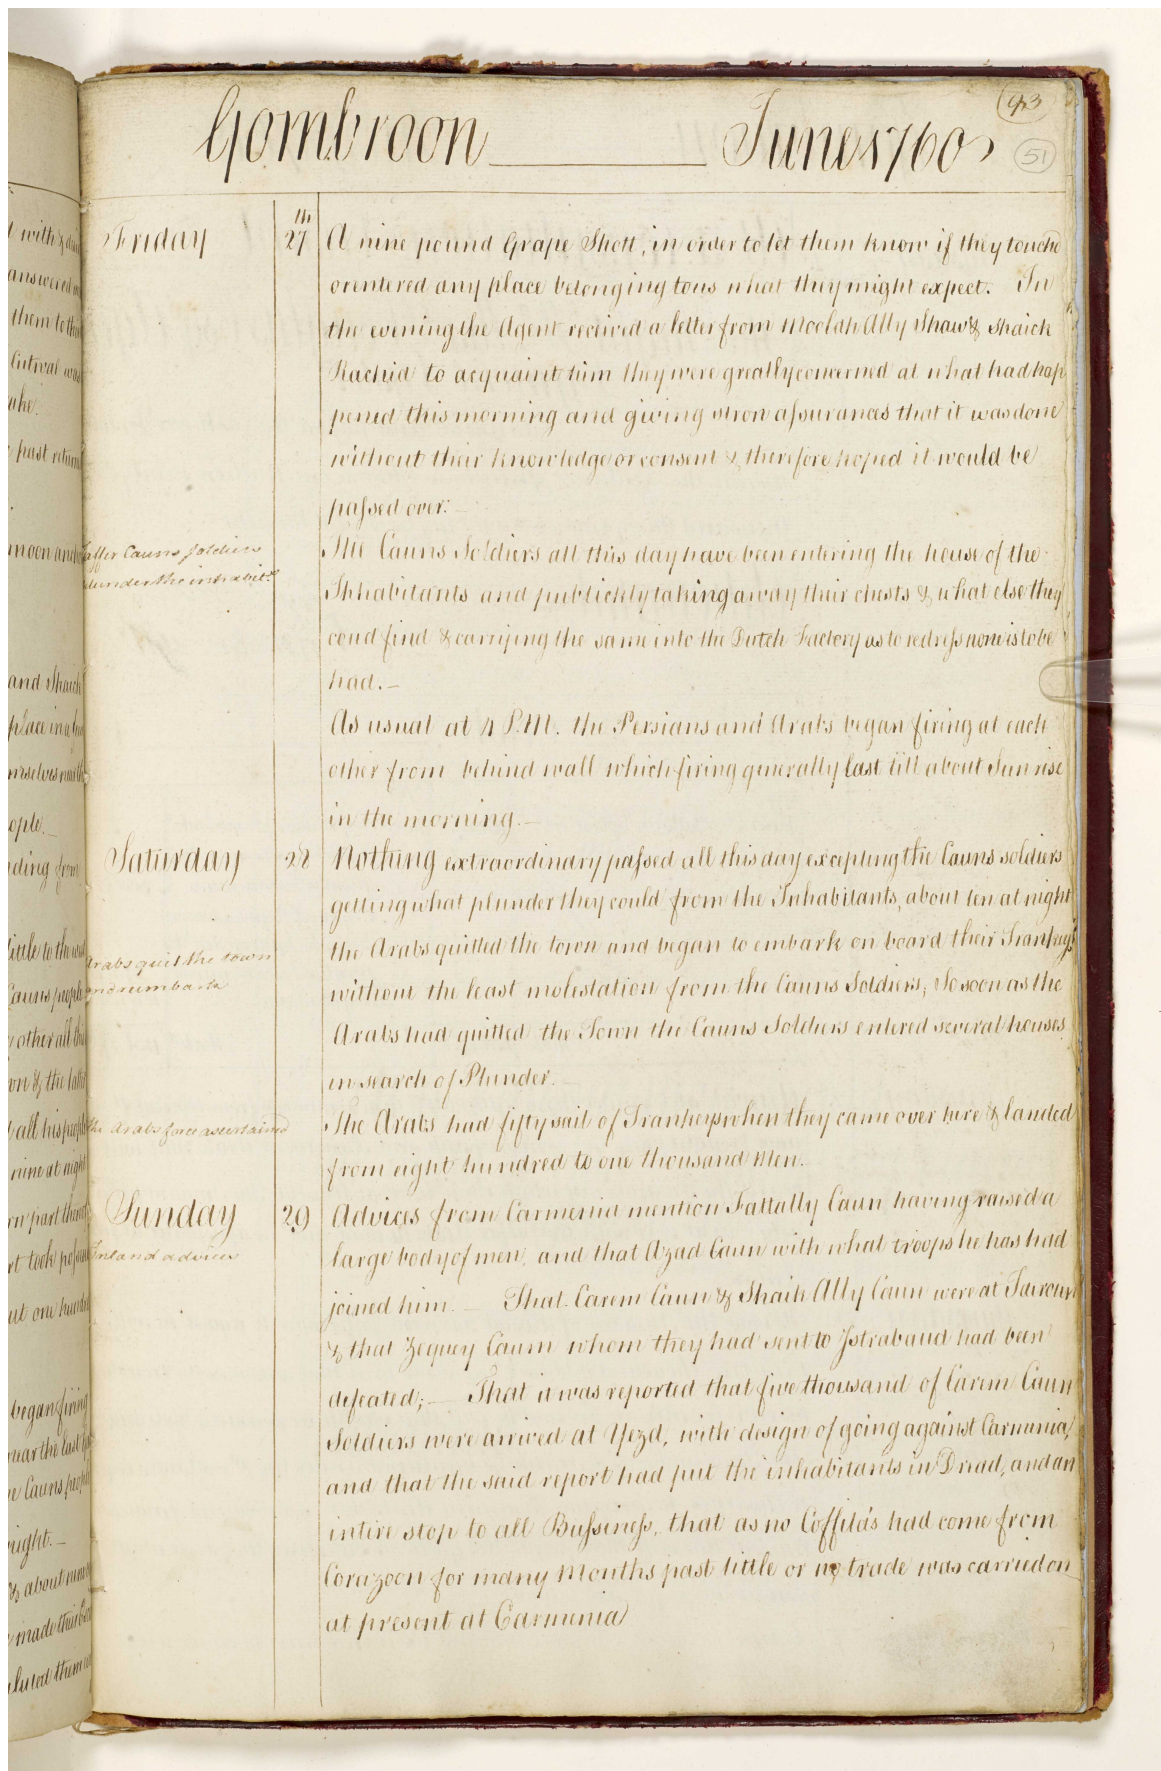 93
Gombroon June 1760
51
Friday 27th A nine pound Grape Shott, in order to let them know if they touchd
or entered any place belonging to us what they might expect. In
the evening the Agent received a letter from Moolah Ally Shaw & Shaick
Rachid to acquaint him they were greatly concerned at what had hap
pened this morning and giving stron assurances that it was done
without their knowledge or consent & therefore hoped it would be
passed over. –
Jaffer Cauns soldiers
plunder the inhabits.
The Cauns Soldiers all this day have been entering the house of the
Inhabitants and publickly taking away their chests & what else they
coud find & carrying the same into the Dutch Factory as to redress none is to be
had. –
As usual at 4 P.M. the Persians and Arabs began firing at each
other from behind wall which firing generally last till about Sun rise
in the morning. –
Saturday 28 Nothing extraordinary passed all this day excepting the Cauns soldiers
getting what plunder they could from the Inhabitants, about ten at night
Arabs quit the town
and rumbark
the Arabs quitted the town and began to embark on board their Trankeys
without the least molestation from the Cauns Soldiers; So soon as the
Arabs had quitted the Town the Cauns Soldiers entered several houses
in search of Plunder. –
the Arabs force ascertained
The Arabs had fifty sail of Trankeys when they came over here & landed
from eight hundred to one thousand Men.
Sunday 29 Advices from Carmenia mention Fattally Caun having raised a
Inland advices
large body of men, and that Azad Caun with what troops he has had
joined him. – That Carem Caun & Shaik Ally Caun were at
& that Zequey Caum whom they had sent to Istrabaud had been
defeated; – That it was reported that five thousand of Carem Caun
Soldiers were arrived at Yezd, with design of going against Carmenia,
and that the said report had put the inhabitants in Dread, and an
intire stop to all Bussiness, that as no Coffila's had come from
Corazoon for many Months past little or no trade was carried on
at present at Carmenia